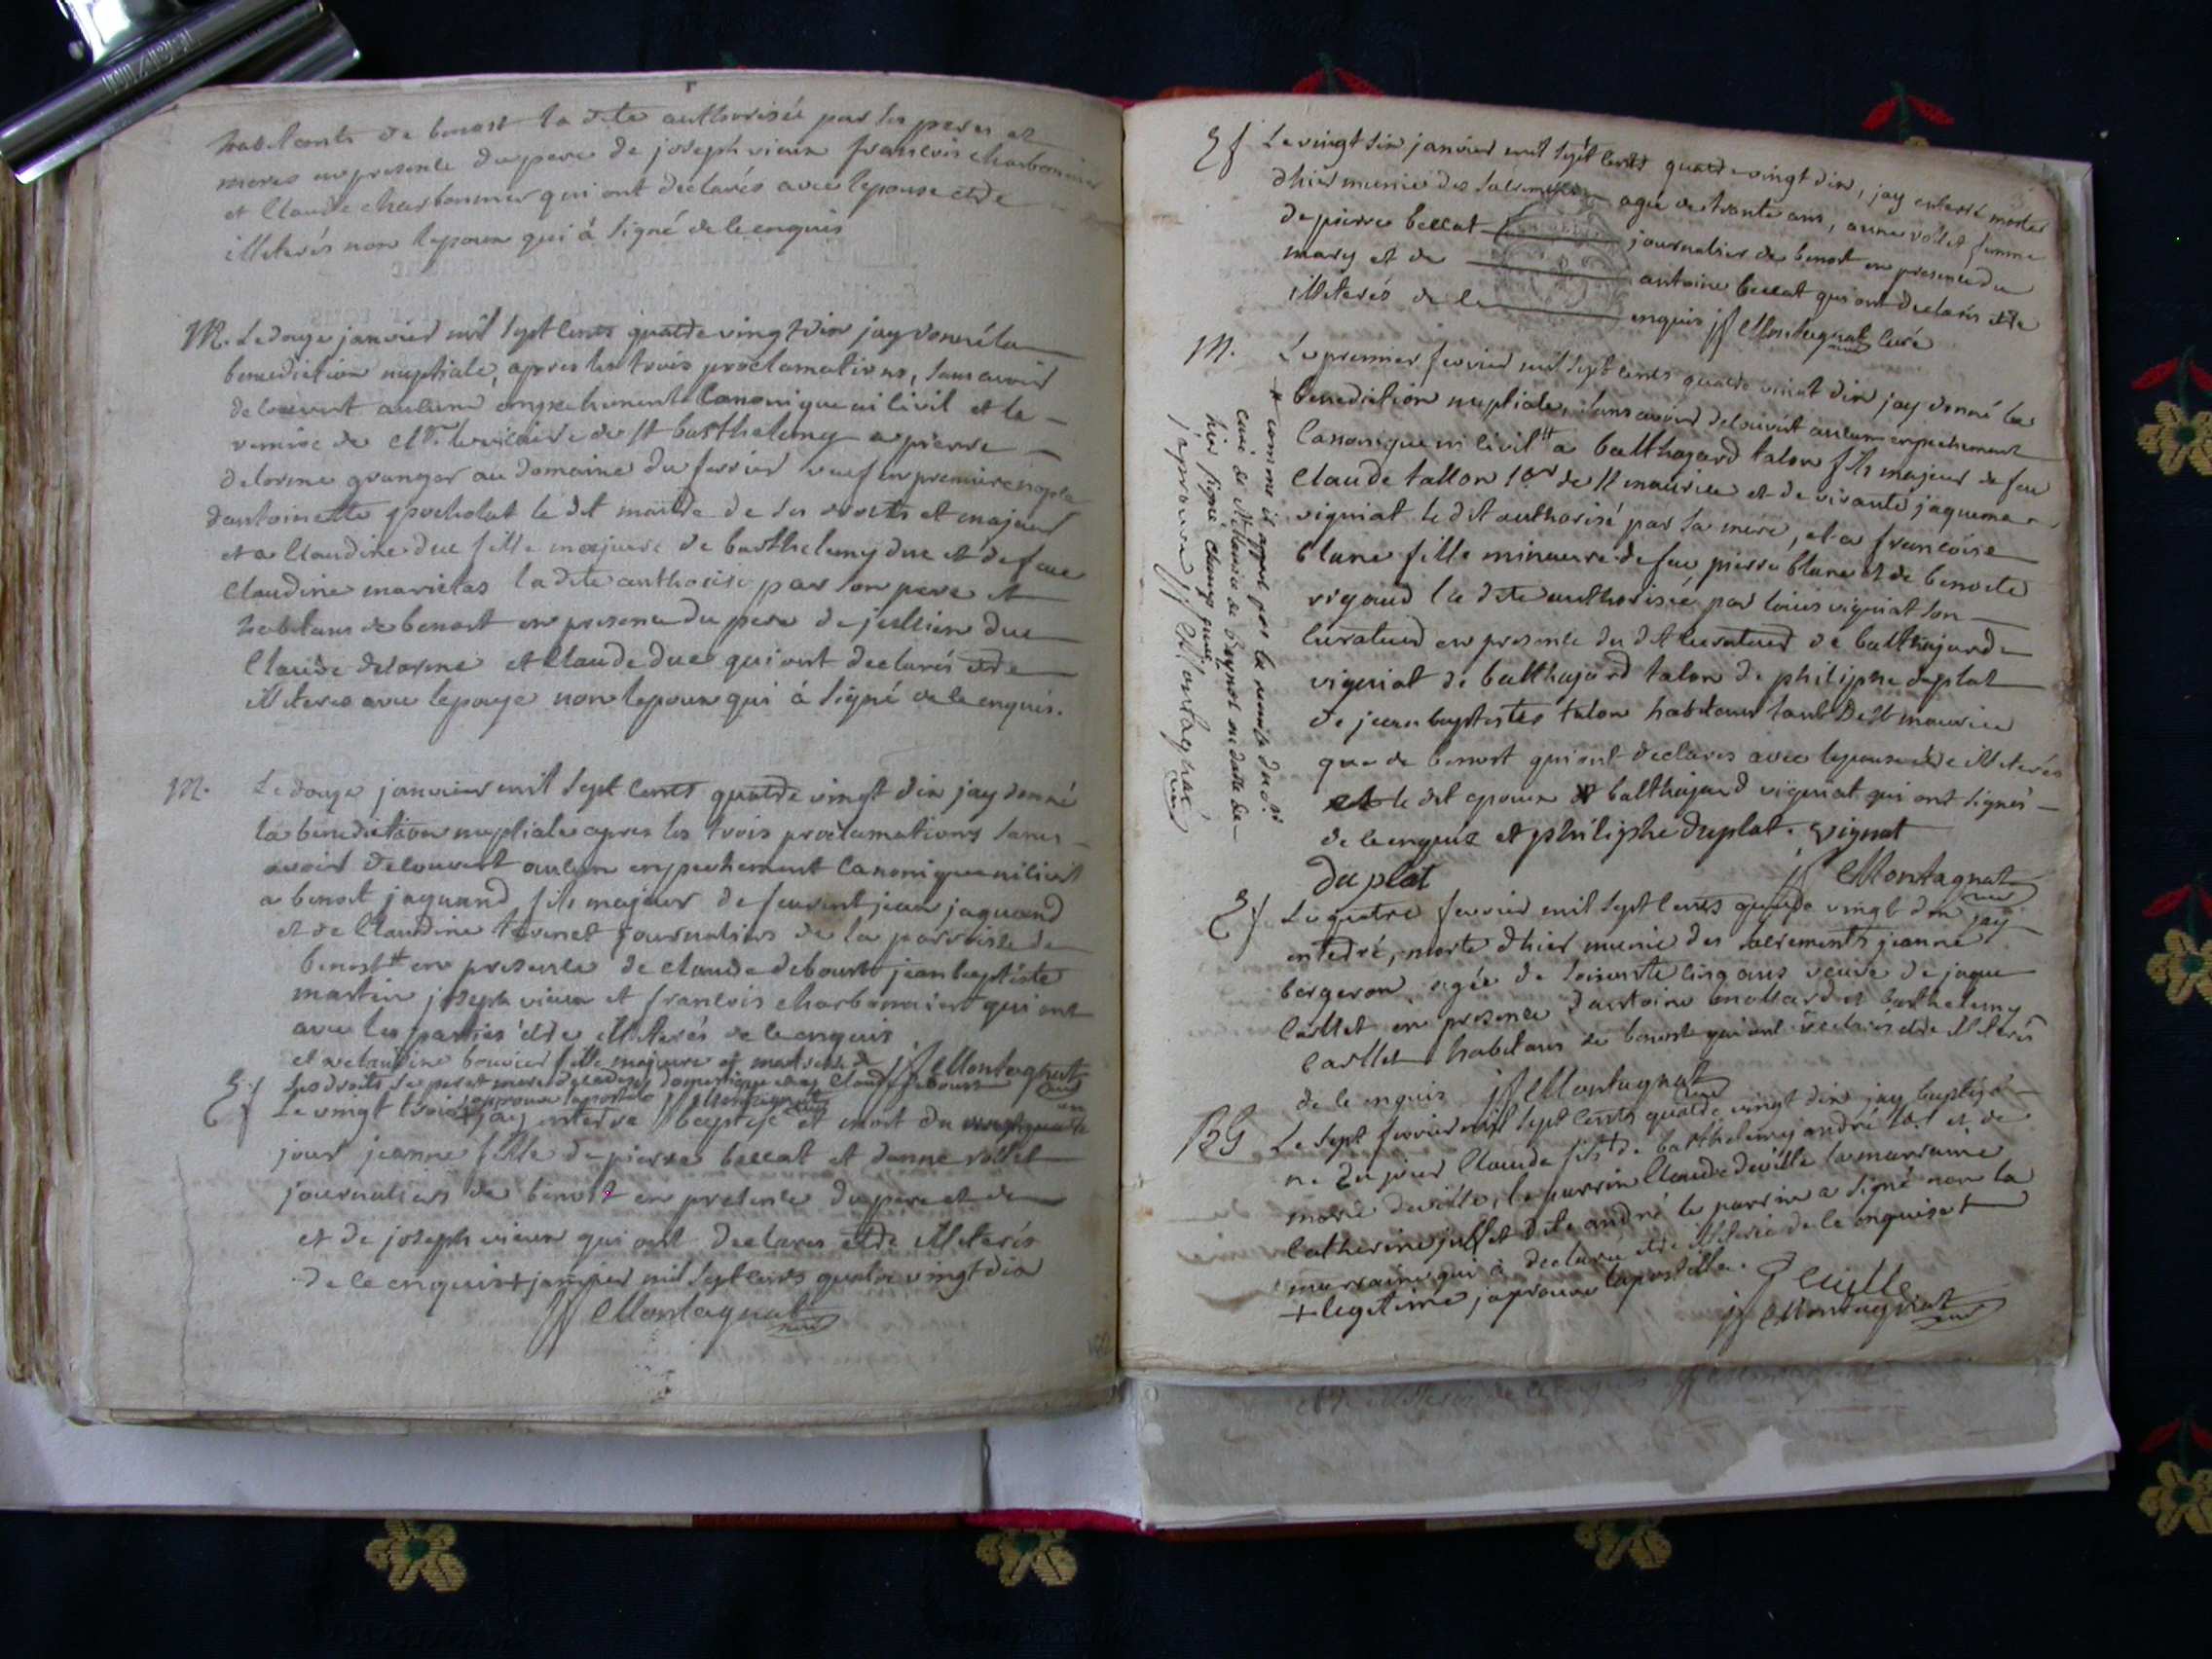 habitants de benost la dite authorisée par ses peres et
meres en presence du pere de joseph vieux francois charbonnier
et Claude charbonnier qui ont declarés avec lepouse etre
illeterés non lepoux qui à signé de ce enquis
M. Le douze janvier mil sept cents quatre vingt dix jay donné la
benediction nuptiale, apres les trois proclamations, sans avoir
decouvert aucun empechement canonique ni civil et la
remise de Mr le vicaire de st barthelemy a pierre
delorme granger au domaine du ferrier veuf en premiere nopce
dantoinette pocholat le dit maitre de ses droits et majeur
et a Claudine duc fille majeure de barthelemy duc et de feue
Claudine marielas la dite authorisée par son pere et
habitans de benost en presence du pere de jullien duc
Claude delorme et Claude duc qui ont declarés etre
illeterés avec lepouse non lepoux qui à signé de ce enquis.
M. Le douze janvier mil sept cents quatre vingt dix jay donné
la benediction nuptiale apres les trois proclamations sans
avoir decouvert aucun empechement canonique ni civil
a benost jaquand fils majeur de feu jean jaquand
et de Claudine tavenet journaliers de la parroisse de
benost # en presence de claude debourt jean baptiste
martin joseph vieux et francois charbonnier qui ont
avec les parties etre illeterés de ce enquis
et a claudine bouvier fille majeure et maitresse de jf Montagnat curé
ses droits ses pere et mere decedes domestique chez Claude debourt
japrouve lapostille jf Montagnat curé
Ef Le vingt trois + jay enterré baptisé et mort du
jour jeanne fille de pierre beccat et danne rollet
journaliers de benost en presence du pere et de
et de joseph vieux qui ont declarés etre illeterés
de ce enquis + janvier mil sept cents quatre vingt dix
jf Montagnat curé
Ef Le vingt six janvier mil sept cents quatre vingt dix, jay enterré morte
dhier munie des sacrements agée de trante ans, anne rollet femme
de pierre beccat journalier de benost en presence du
mary et de antoine beccat qui ont declarés etre
illeterés de ce enquis jf Montagnat curé
M. Le premier fevrier mil sept cents quatre vingt dix jay donné la
benediction nuptiale, sans avoir decouvert aucun empechement
canonique ni civil # a balthazard talon fils majeur de feu
Claude tallon de st maurice et de vivante jaquema
vigniat le dit authorisé par sa mere, et a francoise
blanc fille mineure de feu pierre blanc et de benoite
rigaud la dite authorisée par louis vigniat son
curateur en presence du dit curateur de balthazard
vigniat de balthazard talon de philiphe duplat
de jean baptiste talon habitans tant de st maurice
que de benost qui ont declarés avec lepouse etre illeterés
le dit epoux et balthazard vigniat qui ont signés
de ce enquis et philiphe duplat. vignat
duplat jf Montagnat curé
# comme il appert par la remise du sr
curé de st Maurice de beynost en datte de
hier signé champ curé
japrouve jf Montagnat curé
Ef Le quatre fevrier mil sept cents quatre vingt dix jay
enterré, morte dhier munie des sacrements jeanne
bergeron agée de soixante cinq ans veuve de jaque
caillet en presence dantoine mollard et barthelemy
caillet habitans de benost qui ont declarés etre illeterés
de ce enquis jf Montagnat curé
BG Le sept fevrier mil sept cents quatre vingt dix jay baptizé
né du jour Claude fils + de barthelemy andré et de
marie deville, le parrin Claude deville la marraine
catherine jullet dite andré le parrin a signé non la
marraine qui à declaré etre illeterée de ce enquise
+ legitime, japrouve lapostille. Deville
jf Montagnat curé